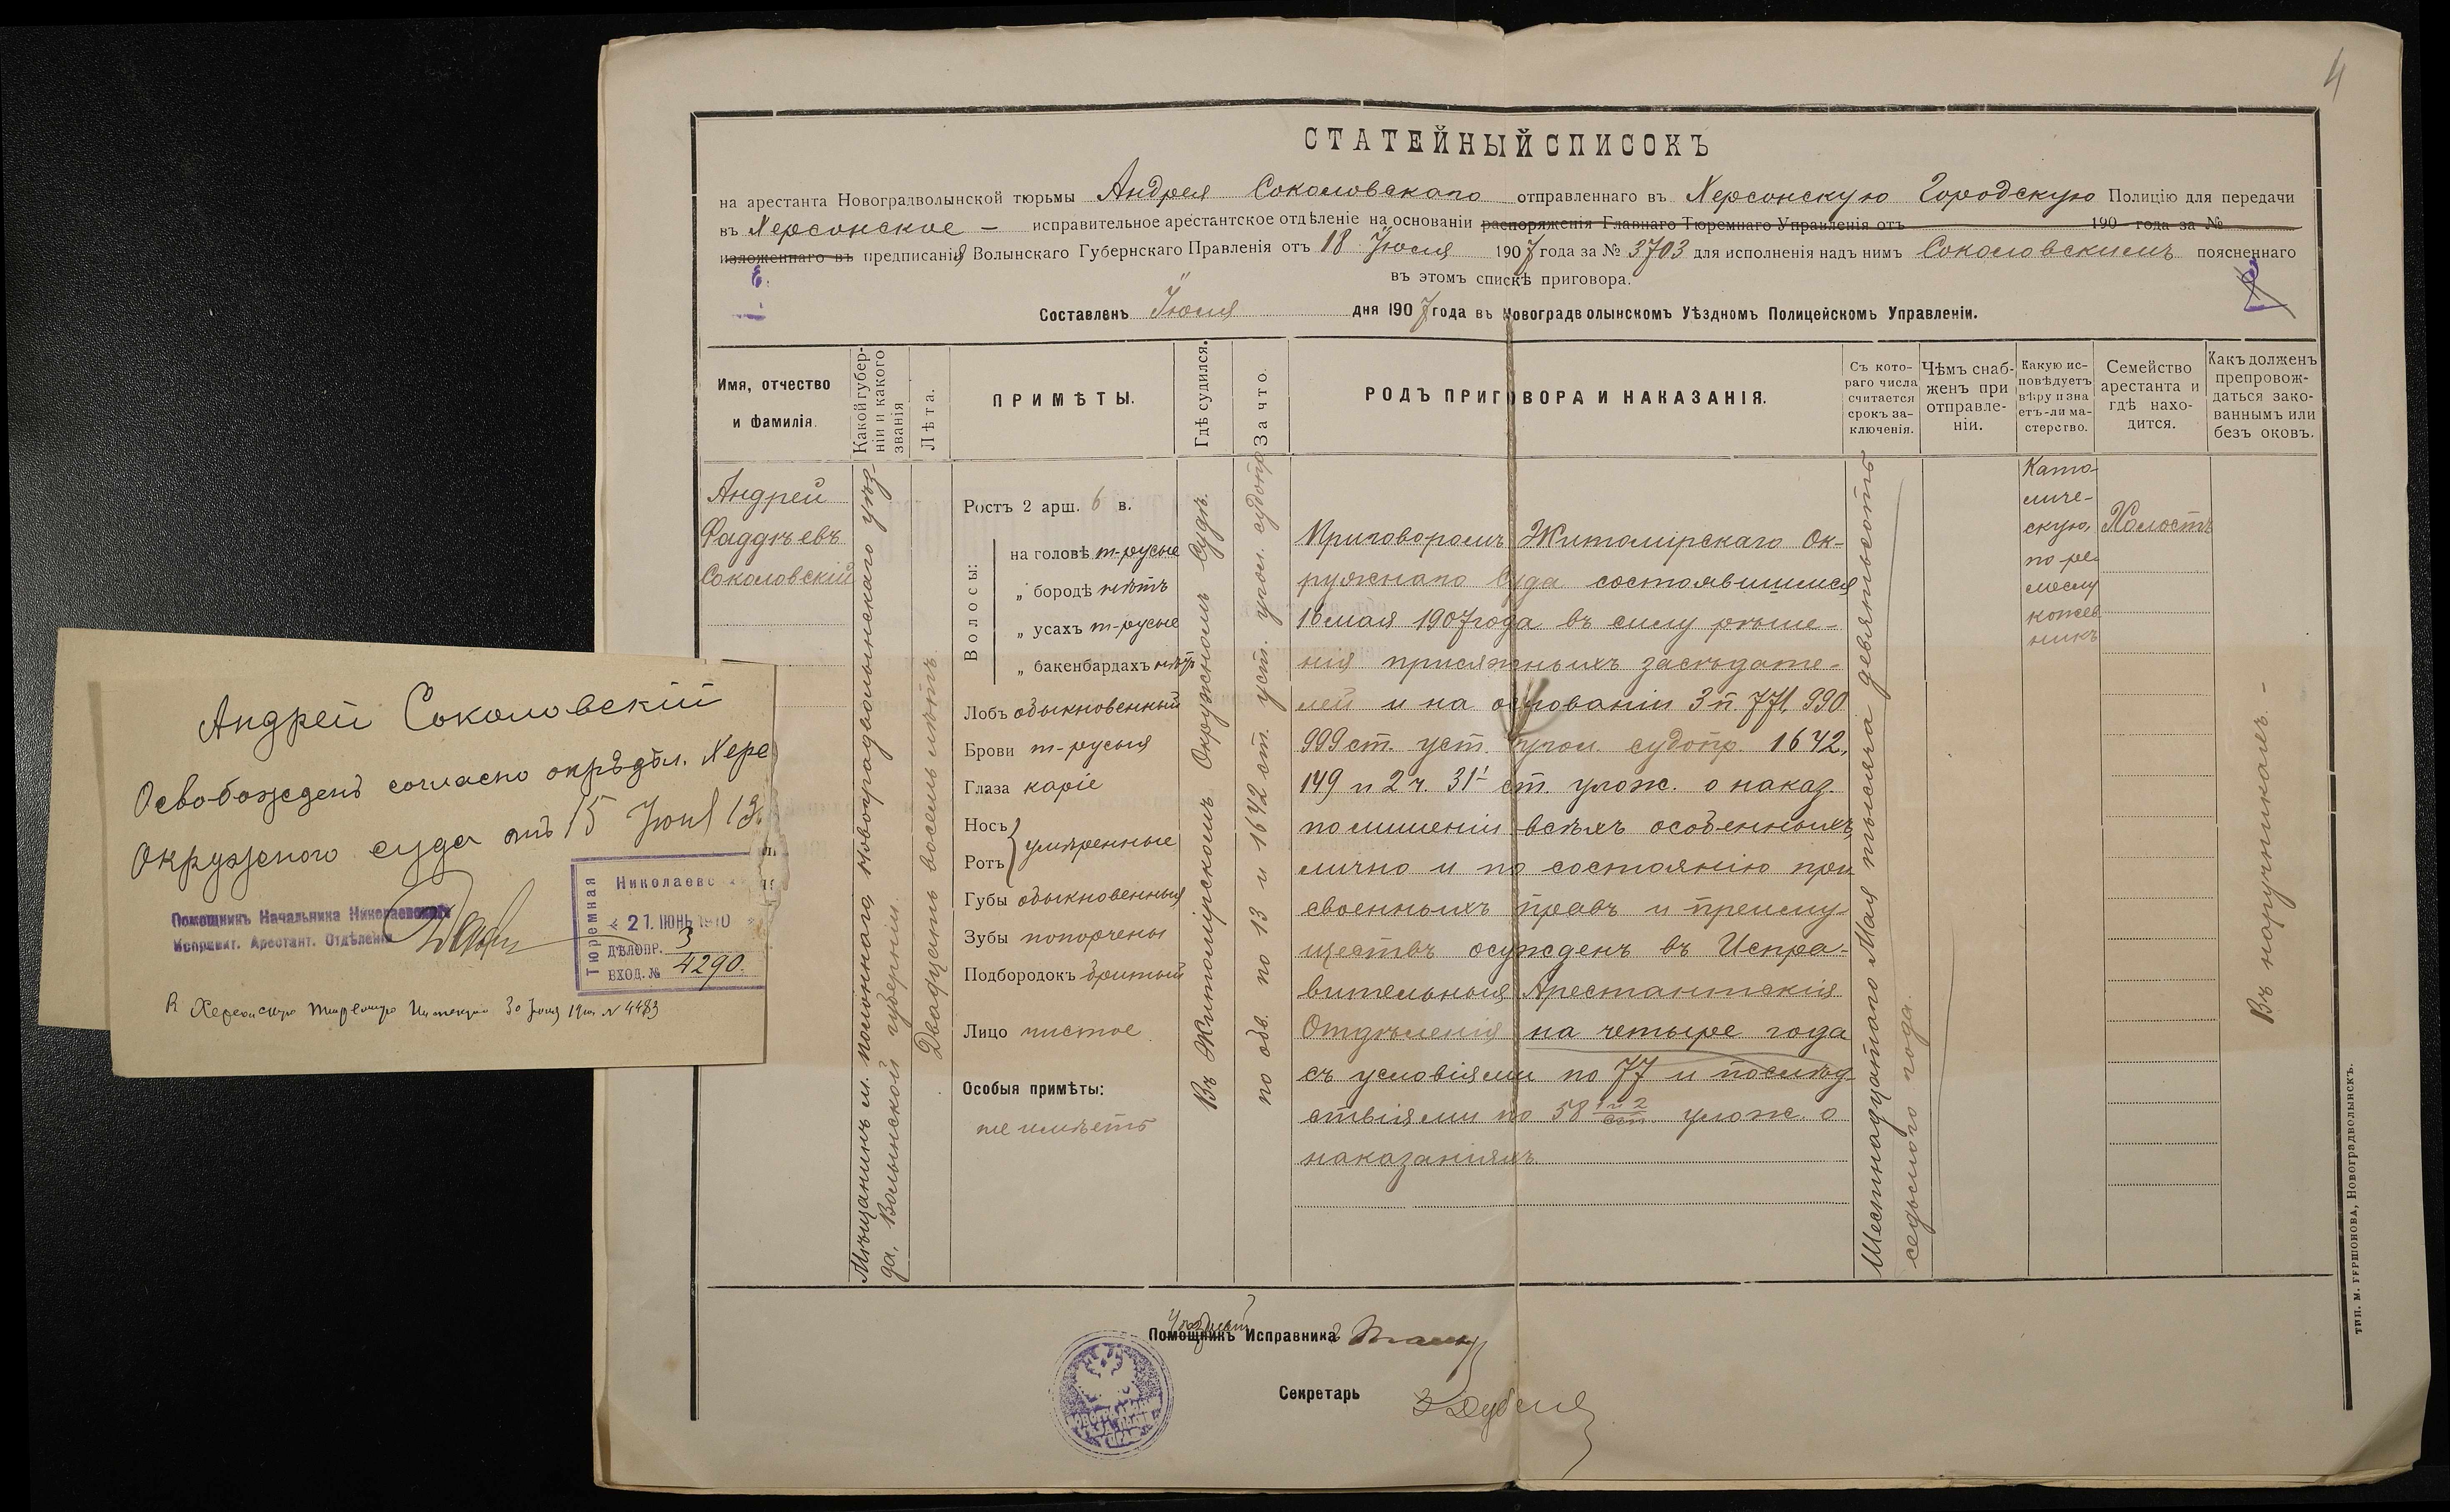 4
СТАТЕЙНЫЙ СПИСОКЪ
на арестанта Новоградволынской тюрьмы Андрея Соколовскаго отправленнаго въ Херсонскую Городскую Полицію для передачи
въ Херсонское — исправительное арестантское отдѣленіе на основаніи распоряженія Главнаго Тюремнаго Управленія отъ 190 года за №
изложеннаго въ предписанія Волынскаго Губернскаго Правленія отъ 18 Іюня 1907 года за № 3703 для исполненія надъ нимъ Соколовскимъ поясненнаго
въ этомъ спискѣ приговора.
Составленъ Іюня дня 1907 года въ Новоградволынскомъ Уѣздномъ Полицейскомъ Управленіи.
Имя, отчество
и фамилія.
Какой губер-
ніи и какого
званія
Лѣта.
ПРИМѢТЫ.
Гдѣ судился.
За что.
РОДЪ ПРИГОВОРА И НАКАЗАНІЯ.
Съ кото-
раго числа
считается
срокъ за-
ключенія.
Чѣмъ снаб-
женъ при
отправле-
ніи.
Какую ис-
повѣдуетъ
вѣру и зна
етъ-ли ма-
стерство.
Семейство
арестанта и
гдѣ нахо-
дится.
Какъ долженъ
препровож-
даться зако-
ваннымъ или
безъ оковъ.
Андрей
Фаддѣевъ
Соколовскій
Мѣщанинъ м. Полоннаго Новоградволынскаго уѣз-
да, Волынской губерніи.
Двадцать восемь лѣтъ
Ростъ 2 арш. 6 в.
Волосы:
на головѣ т-русые
„ бородѣ нѣтъ
„ усахъ т-русые
„ бакенбардахъ нѣтъ
Лобъ обыкновенный
Брови т-русыя
Глаза каріе
Носъ
Ротъ } умѣренные
Губы обыкновенныя
Зубы попорчены
Подбородокъ бритый
Лицо чистое
Особыя примѣты:
не имѣетъ
Въ Житомірскомъ Окружномъ Судѣ.
по обв. по 13 и 1642 ст. уст. угол. судопр
Приговоромъ Житомірскаго Ок-
ружнаго Суда состоявшимся
16 мая 1907 года въ силу рѣше-
нія присяжныхъ засѣдате-
лей и на основаніи 3 п. 771, 990
999 ст. уст. угол. судопр. 1642,
149 и 2 ч. 31¹ ст. улож. о наказ.
по лишеніи всѣхъ особенныхъ,
лично и по состоянію при
своенныхъ правъ и преиму
ществъ осужденъ въ Испра-
вительныя Арестантскія
Отдѣленія на четыре года
съ условіями по 77 и послѣд-
ствіями по 58 1 и 2 ст. улож. о
наказаніяхъ
Шестнадцатаго Мая тысяча девятьсотъ
седьмого года.
Като-
личе-
скую,
по ре-
меслу
кожев
никъ
Холостъ
Въ наручникахъ. –
Помощникъ Исправника
Секретарь
ТИП. М. ГЕРШОНОВА, НОВОГРАДВОЛЫНСКЪ.
Андрей Соколовскій
Освобожденъ согласно опрѣдѣл. Херс
Окружного суда отъ 15 Іюня 19
Помощникъ Начальника Николаевскаго
Исправит. Арестант. Отдѣленія
Тюремная
Николаевс
21. ІЮНЬ 1910
ДѢЛОПР. 3
ВХОД. № 4290.
30 Іюня 1910 N 4483